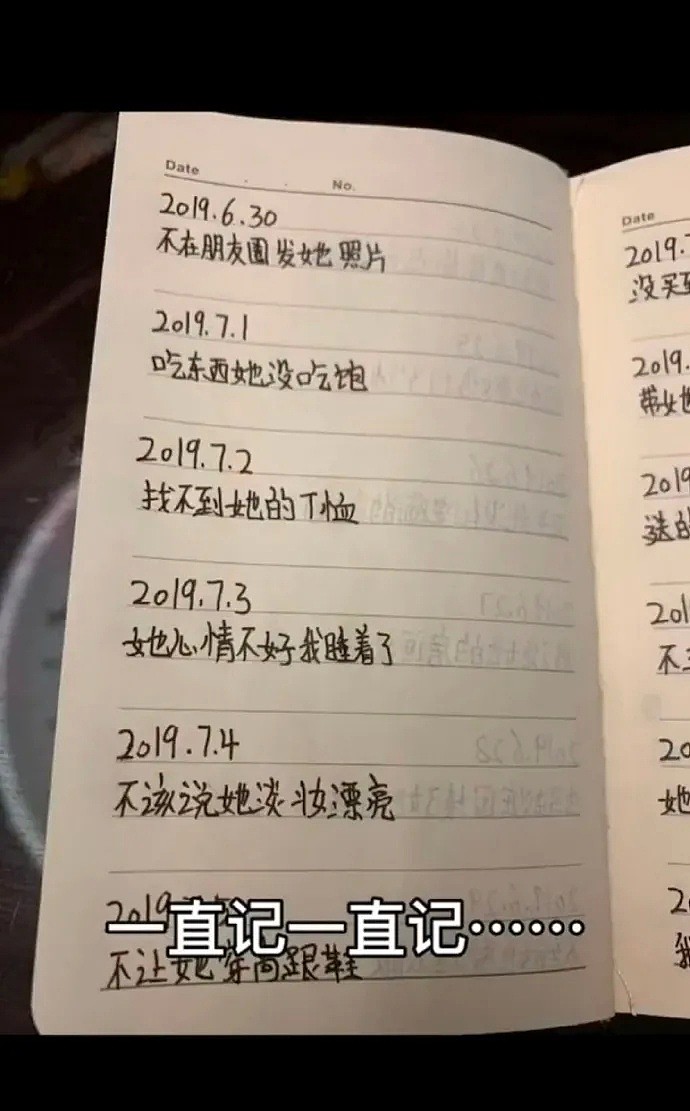 Date
No.
2019.6.30
不在朋友圈发她照片
2019.7.1
吃东西她没吃饱
2019.7.2
找不到她的T恤
2019.7.3
她心情不好我睡着了
2019.7.4
不该说她淡妆漂亮
2019
一直记一直记……
不让她穿高跟鞋
Date
2019.
没买
2019.
带她
2019
送的
201
不
20
她
2
我